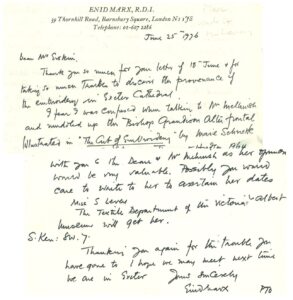 ENID MARX, R.D.I.
39 Thornhill Road, Barnsbury Square, London N1
Telephone: 01-607 2286
June 25 1976
Dear Mr Erskine,
Thank you so much for your letter of 18th June & for
taking so much trouble to discover the provenance of
the embroidery in Exeter Cathedral.
I fear I was confused when talking to Mr
and muddled up the Bishop Grandison Altar frontal
illustrated in "The Art of Embroidery" by Marie Schuette
with you & the Dean & Mr as her opinion
would be very valuable. Possibly you would
care to write to her to ascertain her dates
Miss S Levey
The Textile Department of the Victoria & Albert
Museum will get her.
S. Ken: S.W.7.
Thanking you again for the trouble you
have gone to I hope we may meet next time
we are in Exeter
Yours sincerely
Enid Marx
PTO